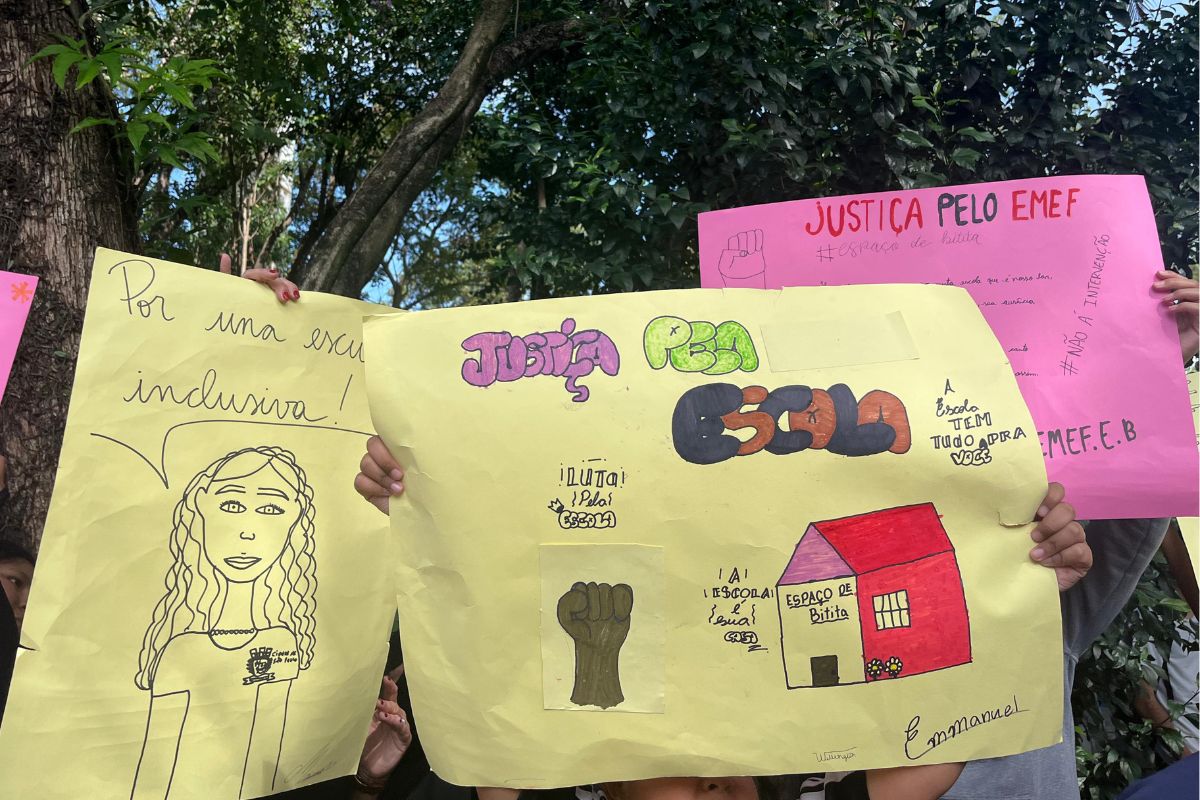 Por
una escu
inclusiva!
Cidade de
São Paulo
JUSTIÇA PELA
ESCOLA
A
Escola
TEM
TUDO PRA
VOCÊ
LUTA
Pela
ESCOLA
A
ESCOLA
é
sua
ESPAÇO DE
Bitita
Emmanuel
JUSTIÇA PELO EMEF
#espaço de bitita
escola que é nosso lar,
#NÃO Á INTERVENÇÃO
EMEF.E.B